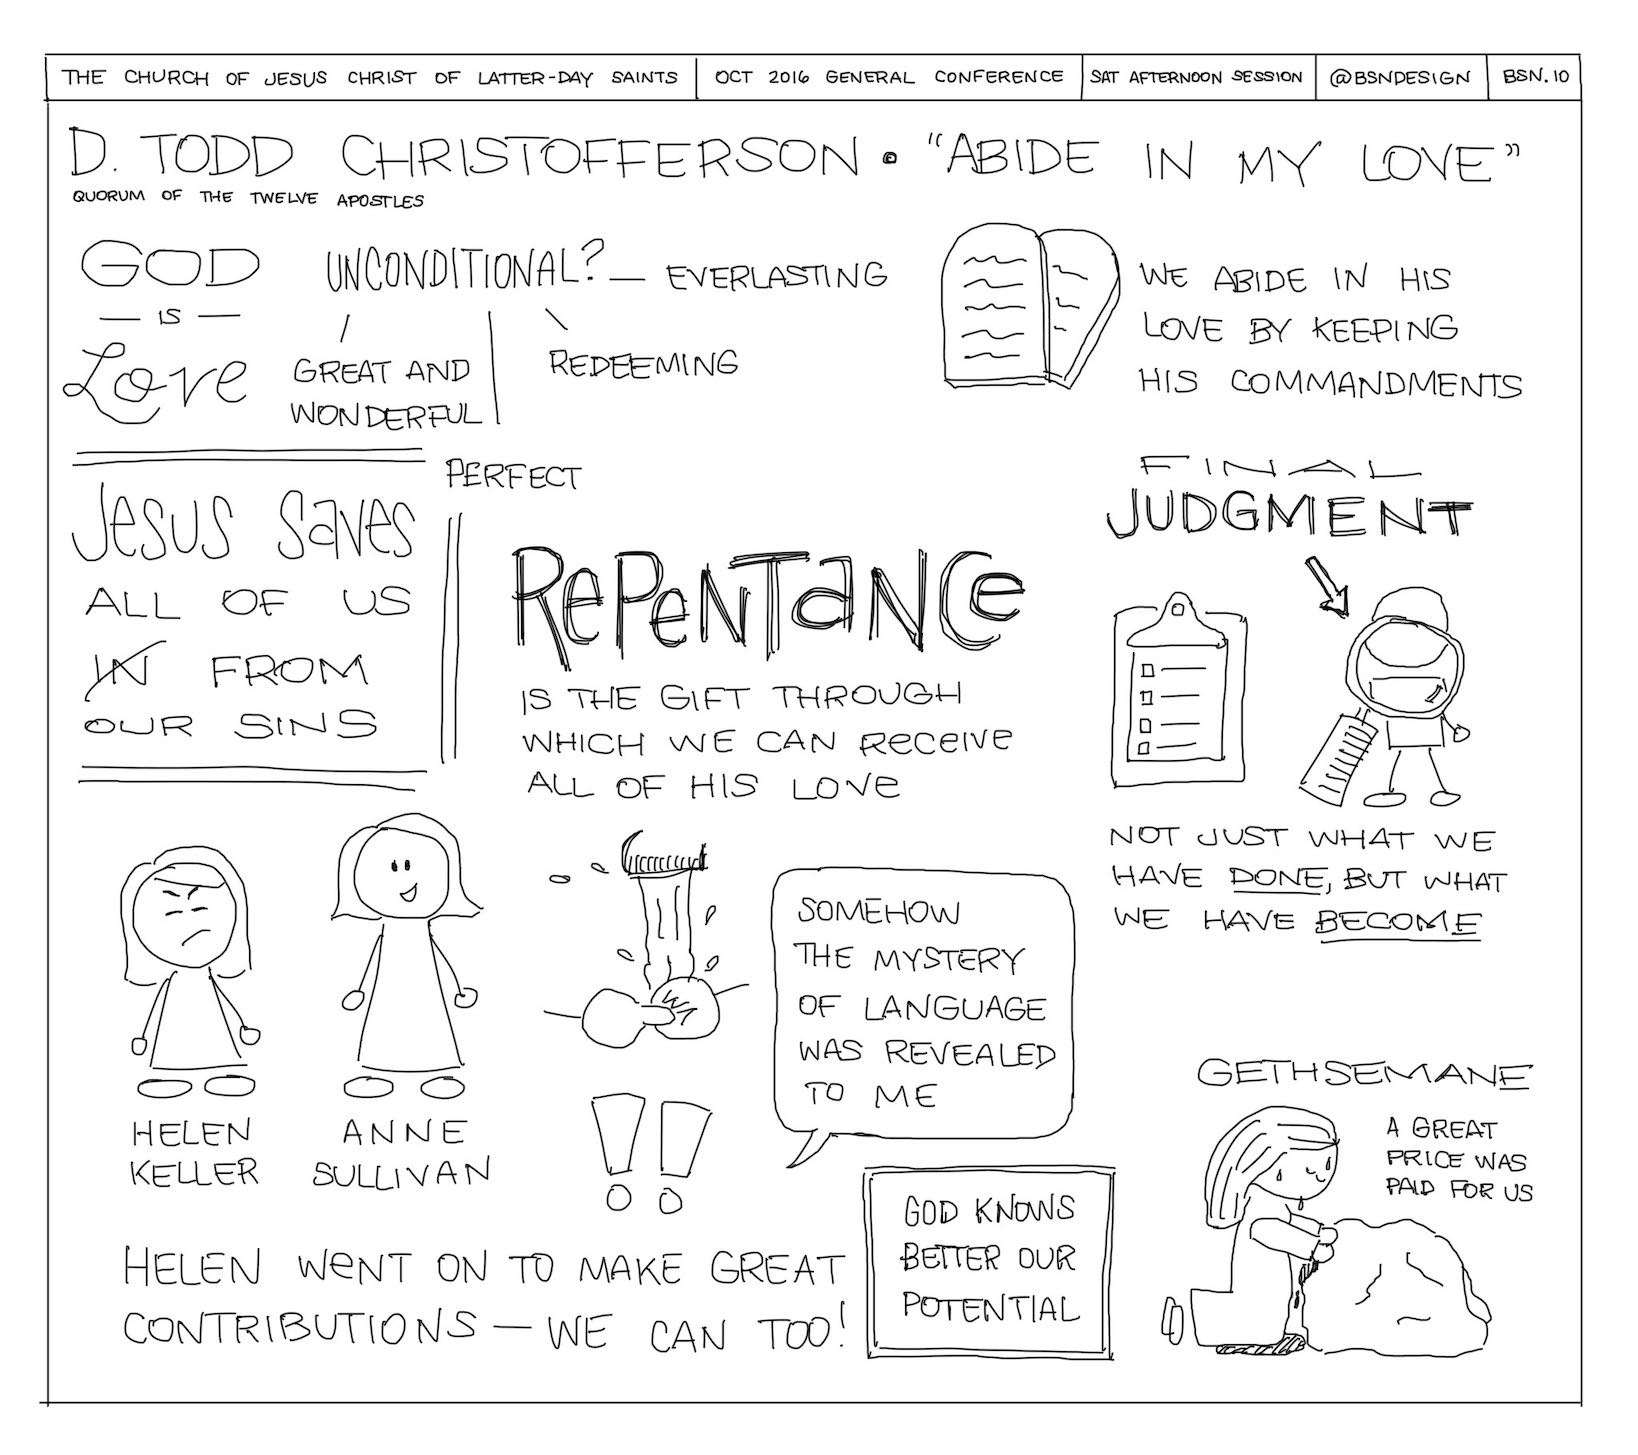 THE CHURCH OF JESUS CHRIST OF LATTER-DAY SAINTS
OCT 2016 GENERAL CONFERENCE
SAT AFTERNOON SESSION
@BSNDESIGN
BSN.10
D. TODD CHRISTOFFERSON • "ABIDE IN MY LOVE"
QUORUM OF THE TWELVE APOSTLES
GOD
— IS —
Love
UNCONDITIONAL? — EVERLASTING
GREAT AND
WONDERFUL
REDEEMING
PERFECT
WE ABIDE IN HIS
LOVE BY KEEPING
HIS COMMANDMENTS
JESUS SAVES
ALL OF US
IN FROM
OUR SINS
REPENTANCE
IS THE GIFT THROUGH
WHICH WE CAN RECEIVE
ALL OF HIS LOVE
FINAL
JUDGMENT
NOT JUST WHAT WE
HAVE DONE, BUT WHAT
WE HAVE BECOME
HELEN
KELLER
ANNE
SULLIVAN
!!
SOMEHOW
THE MYSTERY
OF LANGUAGE
WAS REVEALED
TO ME
HELEN WENT ON TO MAKE GREAT
CONTRIBUTIONS — WE CAN TOO!
GOD KNOWS
BETTER OUR
POTENTIAL
GETHSEMANE
A GREAT
PRICE WAS
PAID FOR US